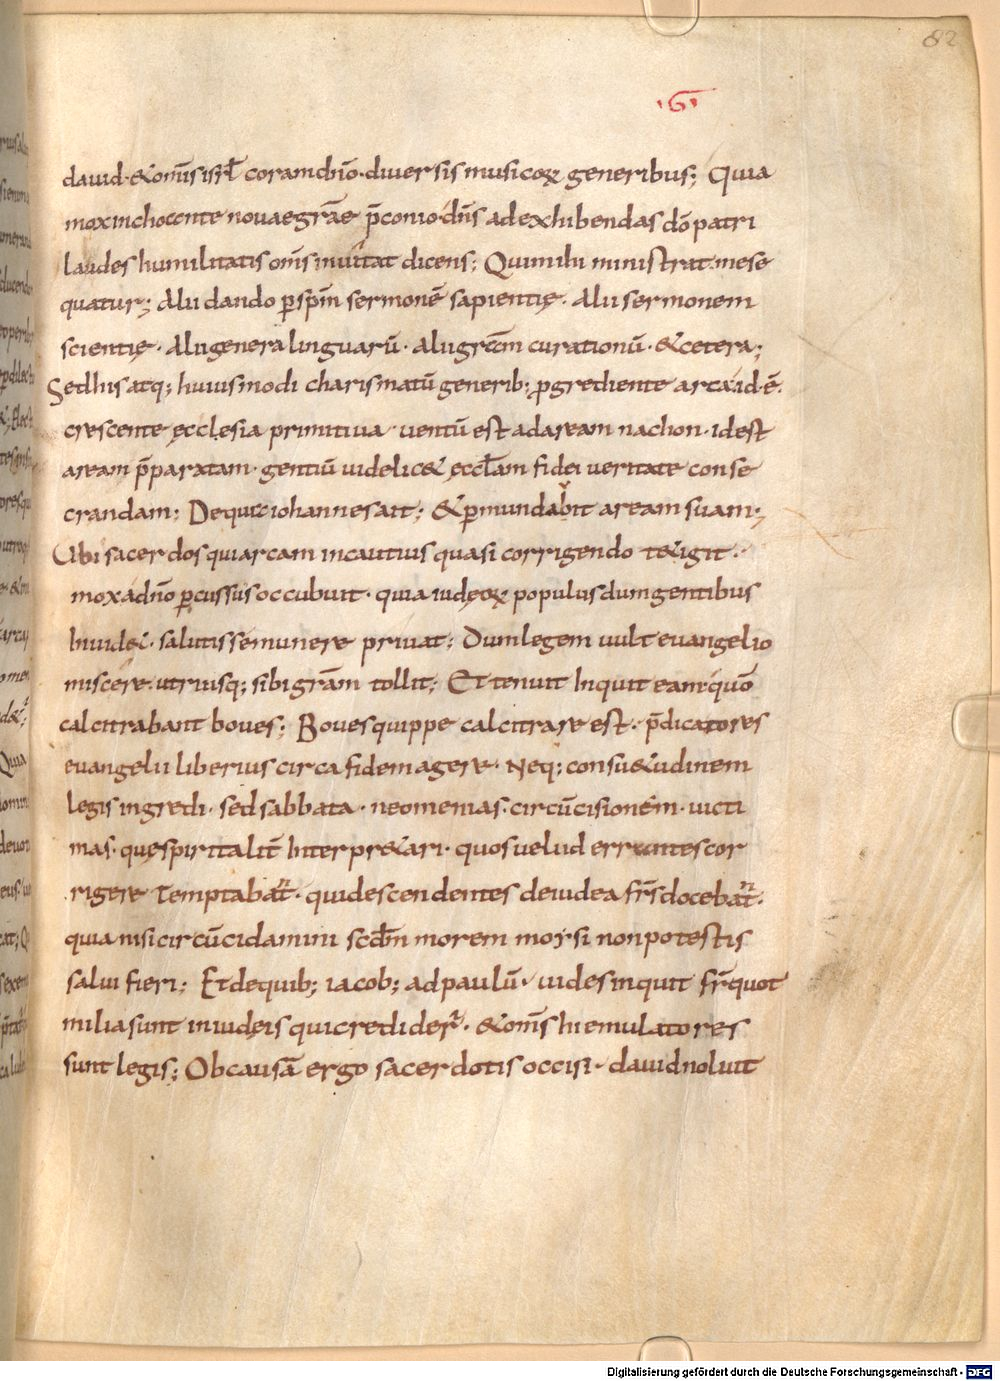 82
·G·
dauid·&om̅sisrł coramdn̅o·diuersis musicoꝝ generibus; Quia
moxinchoante nouaegra̅e p̅conio·dn̅s adexhibendas do̅ patri
laudes humilitatis om̅s inuitat dicens; Quimihi ministrat·mese
quatur; Alii dando ꝑspm̅ sermone̅ sapientię· Alii sermonem
scientię· Aliigenera linguaru̅· aliigra̅m curationu̅· &cetera;
Sedhis atq; huiusmodi charismatu̅ generib; ꝓgrediente arca·id·e̅·
crescente ęcclesia primitiua· uentu̅ est adaream nachon· idest
aream p̅paratam· gentiu̅ uidelic& ęccl̅am fidei ueritate conse
crandam; Dequa iohannesait; &ꝑmundabit aream suam;
Ubi sacerdos quiarcam incautius quasi corrigendo t&igit·
moxadn̅o ꝑcussus occubuit· quia iudęoꝝ populus dumgentibus
Inuid&· salutis se munere priuat; Dumlegem uult euangelio
miscere· utriusq; sibi gra̅m tollit; Et tenuit Inquit eam·quo̅
calcitrabant boues; Bouesquippe calcitrare est· p̅dicatores
euangelii liberius circa fidem agere· Neq; consu&udinem
legis ingredi· sed sabbata· neomenias· circu̅cisionem· uicti
mas· quęspiritalit̅ Interpr&ari· quos uelud errantes cor
rigere Temptaba̅t· quidescendentes deiudea fr̅s doceba̅t·
quia nisi circu̅cidamini scd̅m morem moysi non potestis
salui fieri; Etdequib; iacob; adpaulu̅· uides inquit fr̅ quot
milia sunt iniudęis quicredider̅· &om̅s hi emulatores
sunt legis; Obcausa̅ ergo sacerdotis occisi· dauid noluit
Digitalisierung gefördert durch die Deutsche Forschungsgemeinschaft - DFG